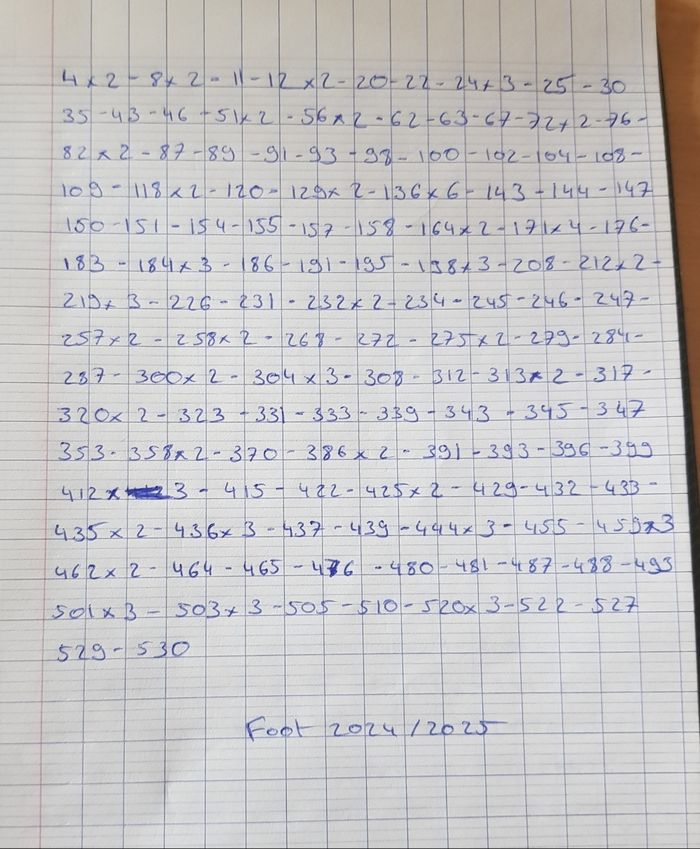 4x2 - 8x2 - 11 - 12x2 - 20 - 22 - 24x3 - 25 - 30
35 - 43 - 46 - 51x2 - 56x2 - 62 - 63 - 67 - 72x2 - 76 -
82x2 - 87 - 89 - 91 - 93 - 98 - 100 - 102 - 104 - 108 -
109 - 118x2 - 120 - 129x2 - 136x6 - 143 - 144 - 147
150 - 151 - 154 - 155 - 157 - 158 - 164x2 - 171x4 - 176 -
183 - 184x3 - 186 - 191 - 195 - 198x3 - 208 - 212x2 -
219x3 - 226 - 231 - 232x2 - 234 - 245 - 246 - 247 -
257x2 - 258x2 - 268 - 272 - 275x2 - 279 - 284 -
287 - 300x2 - 304x3 - 308 - 312 - 313x2 - 317 -
320x2 - 323 - 331 - 333 - 339 - 343 - 345 - 347
353 - 358x2 - 370 - 386x2 - 391 - 393 - 396 - 399
412x3 - 415 - 422 - 425x2 - 429 - 432 - 433 -
435x2 - 436x3 - 437 - 439 - 444x3 - 455 - 459x3
462x2 - 464 - 465 - 476 - 480 - 481 - 487 - 488 - 493
501x3 - 503x3 - 505 - 510 - 520x3 - 522 - 527
529 - 530
Foot 2024/2025